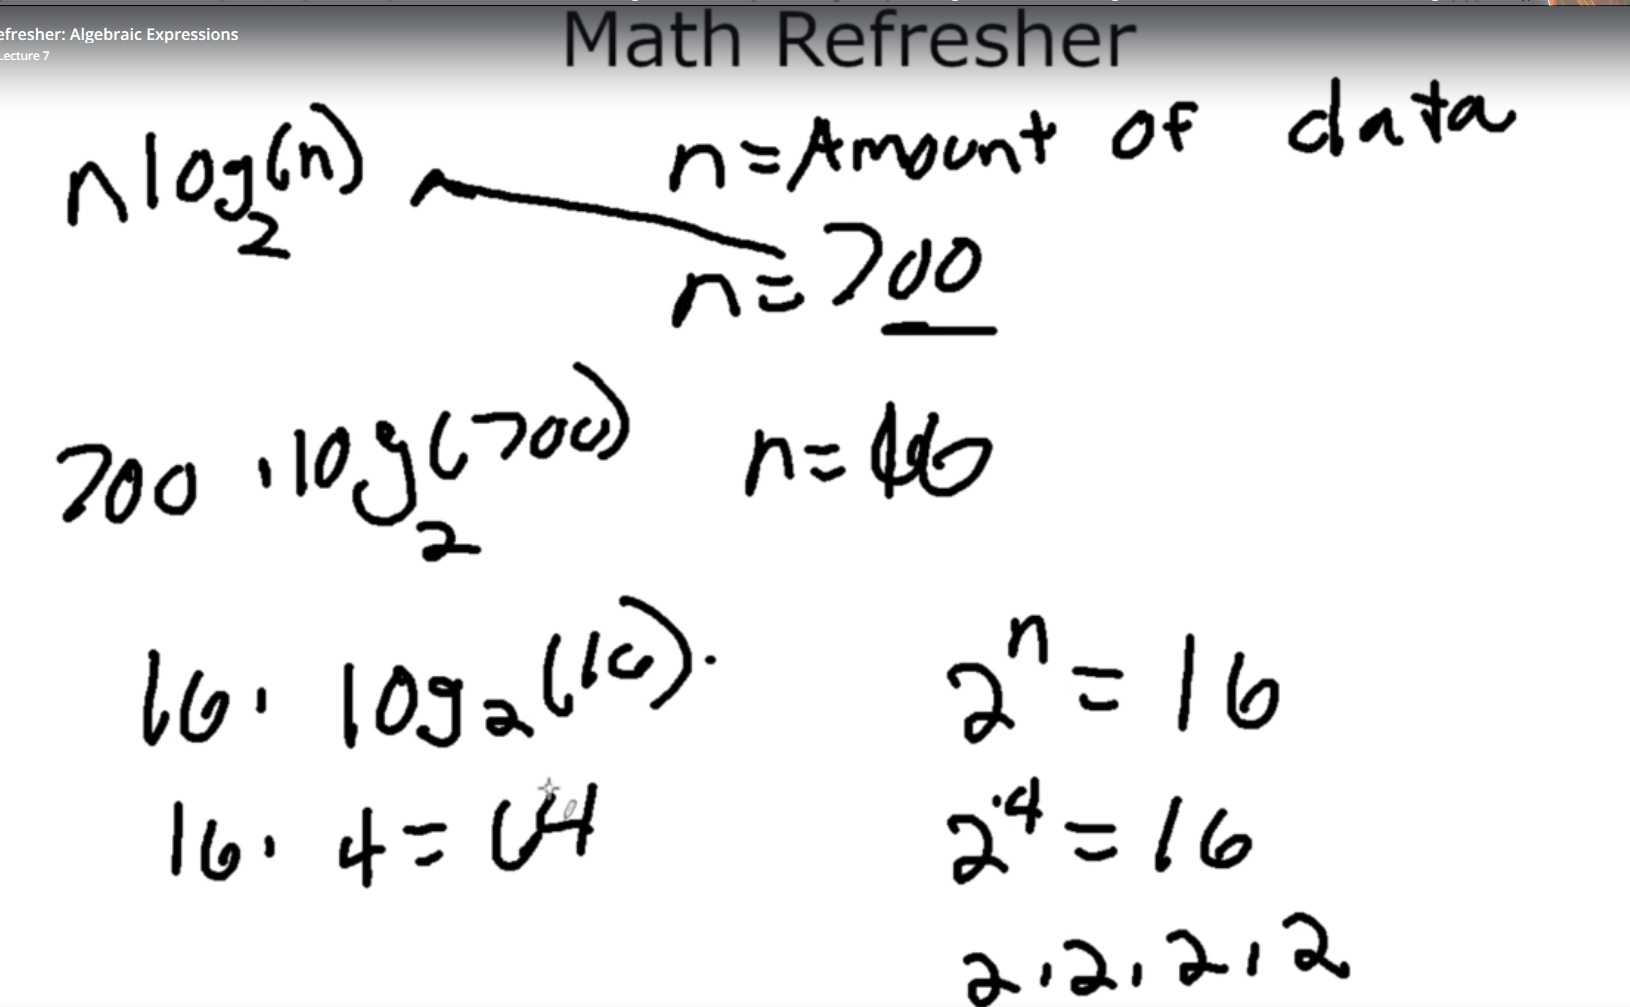 efresher: Algebraic Expressions
Lecture 7
Math Refresher
n log₂(n)
n = Amount of data
n = 700
700 · log₂(700)
n = 16
16 · log₂(16).
2ⁿ = 16
16 · 4 = 64
2⁴ = 16
2 · 2 · 2 · 2